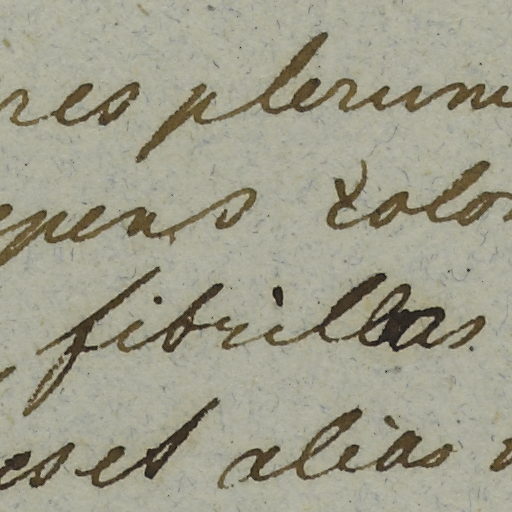 res plerum
epens & olo
fibrillas
es et alias